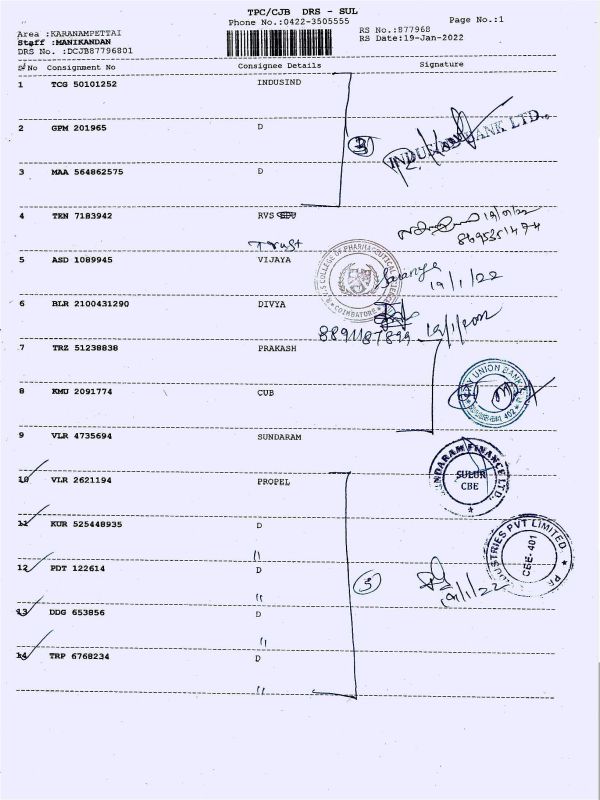 TPC/CJB DRS - SUL
Phone No.:0422-3505555
Page No.:1
Area :KARANAMPETTAI
Staff :MANIKANDAN
DRS No. :DCJB87796801
RS No.:877968
RS Date:19-Jan-2022
S/No Consignment No Consignee Details Signature
1 TCG 50101252 INDUSIND
2 GPM 201965 D
3
INDUSIND BANK LTD.,
3 MAA 564862575 D
4 TEN 7183942 RVS
19/01/22
Trust
5 ASD 1089945 VIJAYA
COLLEGE OF PHARMACEUTICAL
COIMBATORE
19/1/22
6 BLR 2100431290 DIVYA
8891187899 19/1/2022
7 TRZ 51238838 PRAKASH
8 KMU 2091774 CUB
CITY UNION BANK
402
9 VLR 4735694 SUNDARAM
SUNDARAM FINANCE LTD.
SULUR
CBE
10 VLR 2621194 PROPEL
11 KUR 525448935 D
"
INDUSTRIES PVT LIMITED.
CBE- 401
12 PDT 122614 D
5
19/1/22
"
13 DDG 653856 D
"
14 TRP 6768234 D
"